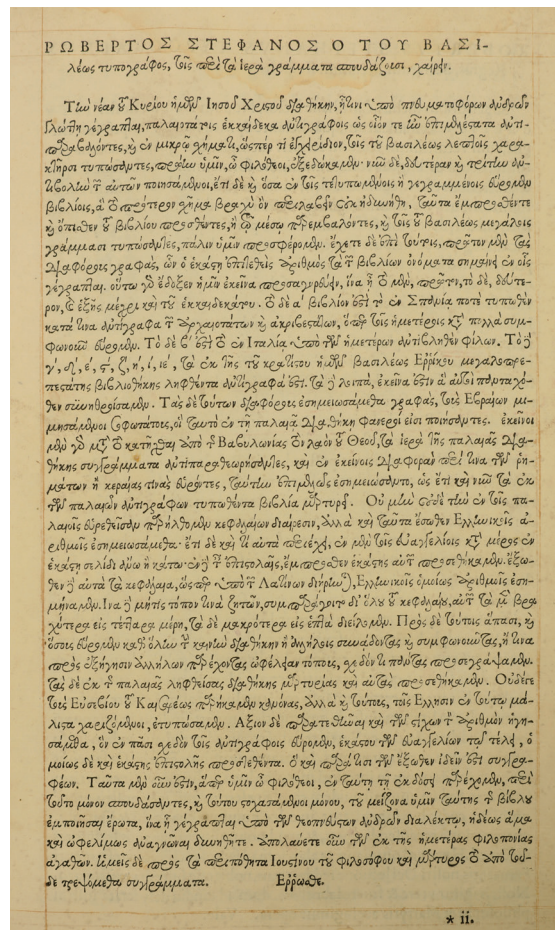 ΡΩΒΕΡΤΟΣ ΣΤΕΦΑΝΟΣ Ο ΤΟΥ ΒΑΣΙ-
λέως τυπογράφος, τοῖς περὶ τὰ ἱερὰ γράμματα σπουδάζουσι, χαίρειν.
Τὴν νέαν τοῦ Κυρίου ἡμῶν Ιησοῦ Χριστοῦ διαθήκην, ἥτινι ὑπὸ πνευματοφόρων ἀνδρῶν
πλώτη γέγραπται, παλαιοτάτοις ἑκκαίδεκα ἀντιγράφοις ὡς οἷόν τε ἦν ἐπιμελέστατα ἀντι-
παραβάλοντες, καὶ ἐν μικρῷ σχήματι, ὥσπερ τι ἐγχειρίδιον, τοῖς τοῦ βασιλέως λεπτοῖς χαρα-
κτῆρσι τυπώσαντες, πρῴην ὑμῖν, ὦ φιλόθεοι, ἐξεδώκαμεν· νῦν δὲ, δευτέραν καὶ τρίτην ἀν-
τιβολὴν τῶν αὐτῶν ποιησάμενοι, ἔτι δὲ καὶ ὅσα ἐν τοῖς τετυπωμένοις ἢ γεγραμμένοις εὕρομεν
βιβλίοις, ἃ τὸ πρότερον σχῆμα βραχὺ ὂν περιλαβεῖν οὐκ ἠδυνήθη, ταῦτα ἔμπροσθέν τε
καὶ ὄπισθεν τοῦ βιβλίου προσθέντες, ἢ τῷ μέσῳ παρεμβαλόντες, καὶ τοῖς τοῦ βασιλέως μεγάλοις
γράμμασι τυπώσαντες, πάλιν ὑμῖν προσφέρομεν. ἔχετε δὲ ἐπὶ τούτοις, πρῶτον μὲν τὰς
διαφόρους γραφὰς, ὧν ὁ ἑκάστῃ ἐπιτεθεὶς ἀριθμὸς τὰ τῶν βιβλίων ὀνόματα σημαίνει ἐν οἷς
γέγραπται. οὕτω γὰρ ἔδοξεν ἡμῖν ἐκεῖνα προσαγορεύειν, ἵνα ᾖ τὸ μὲν, πρῶτον, τὸ δὲ, δεύτε-
ρον, καὶ ἑξῆς μέχρι καὶ τοῦ ἑκκαιδεκάτου. Τὸ δὲ α΄ βιβλίον ἐστὶ τὸ ἐν Σπανίᾳ ποτὲ τυπωθὲν
κατά τινα ἀντίγραφα τῶν ἀρχαιοτάτων καὶ ἀκριβεστάτων, ὅπερ τοῖς ἡμετέροις κατὰ πολλὰ συμ-
φωνοῦν εὕρομεν. Τὸ δὲ β΄ ἐστὶ τὸ ἐν Ιταλίᾳ ὑπὸ τῶν ἡμετέρων ἀντιβληθὲν φίλων. Τὸ δὲ
γ΄, δ΄, ε΄, ϛ΄, ζ΄, η΄, ι΄, ιε΄, τὰ ἐκ τῆς τοῦ κρατίστου ἡμῶν βασιλέως Ερρίκου μεγαλοπρε-
πεστάτης βιβλιοθήκης ληφθέντα ἀντίγραφά ἐστι. τὰ δὲ λοιπὰ, ἐκεῖνά ἐστιν ἃ αὐτοὶ πανταχό-
θεν συνηθροίσαμεν. Τὰς δὲ τούτων διαφόρους ἐσημειωσάμεθα γραφὰς, τοὺς Εβραίων μι-
μησάμενοι σοφωτάτους, οἳ ταυτὸ ἐν τῇ παλαιᾷ διαθήκῃ φανεροί εἰσι ποιήσαντες. ἐκεῖνοι
μὲν γὰρ μετὰ τὸ κατῆχθαι ἀπὸ τῆς Βαβυλωνίας τὸν λαὸν τοῦ Θεοῦ, τὰ ἱερὰ τῆς παλαιᾶς δια-
θήκης συγγράμματα ἀντιπαραθεωρήσαντες, καὶ ἐν ἐκείνοις διαφορὰν περί τινα τῶν ῥη-
μάτων ἢ κεραίας τινὰς εὑρόντες, ταύτην ἐπιμελῶς ἐσημειώσαντο, ὡς ἔτι καὶ νῦν τὰ ἐκ
τῶν παλαιῶν ἀντιγράφων τυπωθέντα βιβλία μαρτυρεῖ. Οὐ μὴν οὐδὲ τὴν ἐν τοῖς πα-
λαιοῖς εὑρεθεῖσαν παρήλθομεν κεφαλαίων διαίρεσιν, ἀλλὰ καὶ ταῦτα ἔσωθεν Ελληνικοῖς ἀ-
ριθμοῖς ἐσημειωσάμεθα· ἔτι δὲ καὶ τί αὐτὰ περιέχει, ἐν μὲν τοῖς εὐαγγελίοις κατὰ μέρος ἐν
ἑκάστῃ σελίδι ἄνω ἢ κάτω· ἐν δὲ ταῖς ἐπιστολαῖς, ἔμπροσθεν ἑκάστης αὐτῶν προσεθήκαμεν. ἔξω-
θεν δὲ αὐτὰ τὰ κεφάλαια, ὥσπερ ὑπὸ τῶν Λατίνων διῄρηται, Ελληνικοῖς ὁμοίως ἀριθμοῖς ἐση-
μήναμεν. Ινα δὲ μήτις τόπον τινὰ ζητῶν, συμπεράνοιτο δι᾽ ὅλου τοῦ κεφαλαίου, αὐτῶν τὰ μὲν βρα-
χύτερα εἰς τέτταρα μέρη, τὰ δὲ μακρότερα εἰς ἑπτὰ διείλομεν. Πρὸς δὲ τούτοις ἅπασι, καὶ
ὅσοις εὕρομεν καθ᾽ ὅλην τὴν καινὴν διαθήκην ἢ ἀλλήλοις συνᾴδοντας καὶ συμφωνοῦντας, ἤ τινα
πρὸς ἐξήγησιν ἀλλήλων παρέχοντας ὠφέλειαν τόπους, σχεδὸν πάντας προσεγράψαμεν.
τὰς δὲ ἐκ τῆς παλαιᾶς ληφθείσας διαθήκης μαρτυρίας καὶ αὐτὰς προσεθήκαμεν. Οὐδέ τε
τοὺς Εὐσεβίου τοῦ Καισαρέως παρήκαμεν κανόνας, ἀλλὰ καὶ τούτους, τοῖς Ελλησιν ἐν τούτῳ μά-
λιστα χαριζόμενοι, ἐτυπώσαμεν. Αξιον δὲ παρατεθῆναι καὶ τὸν στίχων τὸν ἀριθμὸν ἡγη-
σάμεθα, ὃν ἐν πᾶσι σχεδὸν τοῖς ἀντιγράφοις εὕρομεν, ἑκάστου τῶν εὐαγγελίων τῷ τέλει, ὁ-
μοίως δὲ καὶ ἑκάστης ἐπιστολῆς προστεθέντα. ὃ καὶ παρὰ τισὶ τῶν ἔξωθεν ἰδεῖν ἐστὶ συγγρα-
φέων. Ταῦτα μὲν οὖν ἐστὶν, ἅπερ ὑμῖν ὦ φιλόθεοι, ἐν ταύτῃ τῇ ἐκδόσει παρέχομεν, περὶ
τοῦτο μόνον σπουδάσαντες, καὶ τούτου στοχασάμενοι μόνου, τοῦ μείζονα ὑμῖν ταύτης τῆς βίβλου
ἐμποιῆσαι ἔρωτα, ἵνα ᾗ γέγραπται ὑπὸ τῶν θεοπνεύστων ἀνδρῶν διαλέκτῳ, ἡδέως ἅμα
καὶ ὠφελίμως ἀναγνῶναι δυνηθῆτε. Απολαύετε οὖν τῶν ἐκ τῆς ἡμετέρας φιλοπονίας
ἀγαθῶν. Ημεῖς δὲ πρὸς τὰ περιπόθητα Ιουστίνου τοῦ φιλοσόφου καὶ μάρτυρος τὸ ἀπὸ τοῦ-
δε τρεψόμεθα συγγράμματα. Ερρωσθε.
* ii.